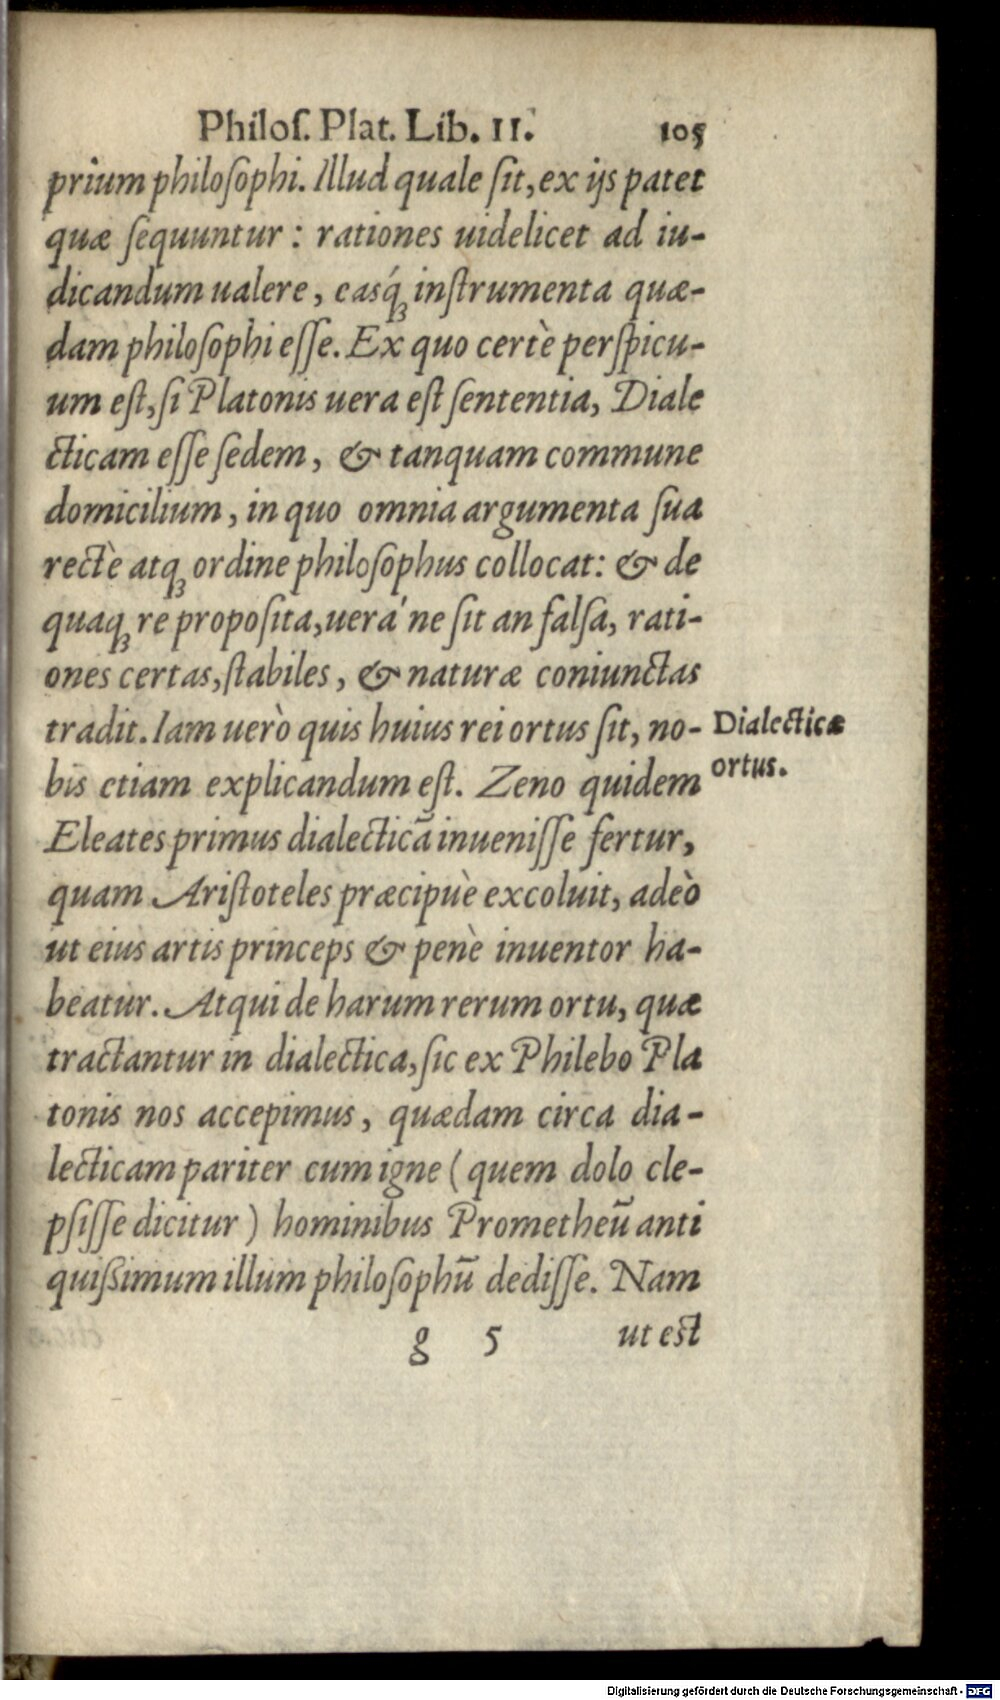 Philoſ. Plat. Lib. II. 105
prium philoſophi. Illud quale ſit, ex ijs patet
quæ ſequuntur : rationes uidelicet ad iu-
dicandum ualere, easq́ꝫ inſtrumenta quæ-
dam philoſophi eſſe. Ex quo certè perſpicu-
um eſt, ſi Platonis uera eſt ſententia, Diale
cticam eſſe ſedem, & tanquam commune
domicilium, in quo omnia argumenta ſua
rectè atqꝫ ordine philoſophus collocat: & de
quaqꝫ re propoſita, uerá ne ſit an falſa, rati-
ones certas, ſtabiles, & naturæ coniunctas
tradit. Iam uerò quis huius rei ortus ſit, no-
Dialecticæ
ortus.
bis etiam explicandum eſt. Zeno quidem
Eleates primus dialecticā inueniſſe fertur,
quam Ariſtoteles præcipuè excoluit, adeò
ut eius artis princeps & penè inuentor ha-
beatur. Atqui de harum rerum ortu, quæ
tractantur in dialectica, ſic ex Philebo Pla
tonis nos accepimus, quædam circa dia-
lecticam pariter cum igne ( quem dolo cle-
pſiſſe dicitur ) hominibus Prometheū anti
quiſsimum illum philoſophū dediſſe. Nam
g 5 ut est
Digitalisierung gefördert durch die Deutsche Forschungsgemeinschaft - DFG